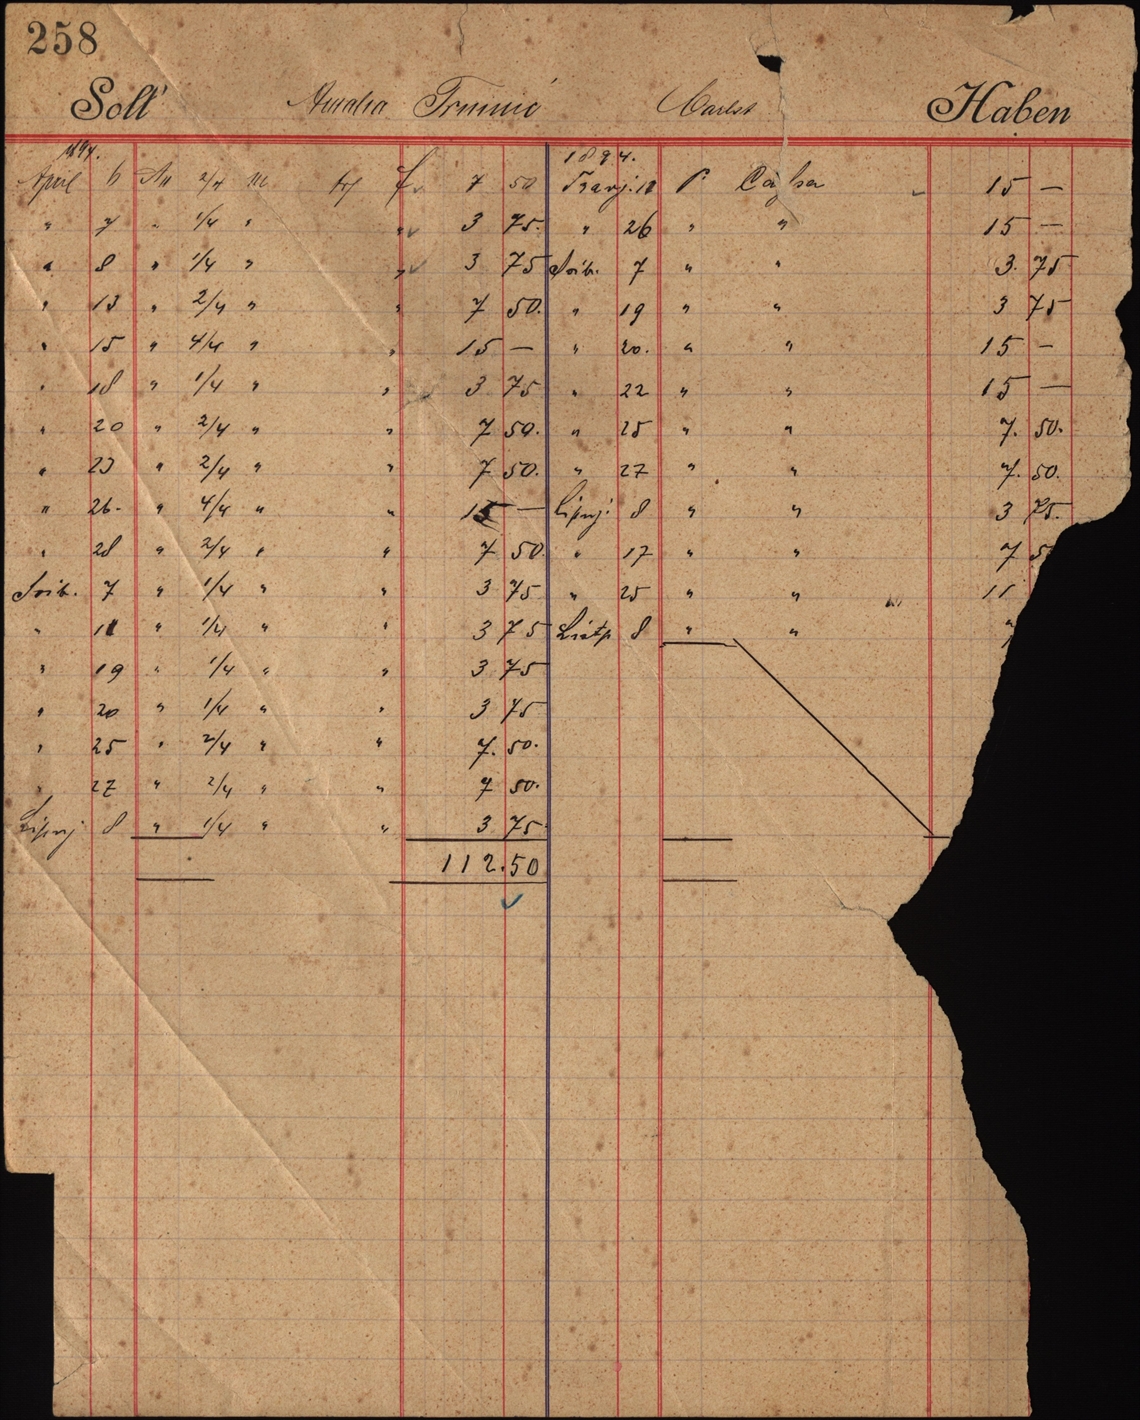 258
Soll Haben
1894. 1894.
April 6 2/4 7 50 Travj. 18 P. Cassa 15 —
" 7 " 1/4 " " 3 75. " 26 " " 15 —
" 8 " 1/4 " " 3 75 Svib. 7 " " 3. 75
" 13 " 2/4 " " 7 50. " 19 " " 3 75
" 15 " 4/4 " " 15 — " 20. " " 15 —
" 18 " 1/4 " " 3 75 " 22 " " 15 —
" 20 " 2/4 " " 7 50. " 25 " " 7. 50.
" 23 " 2/4 " " 7 50. " 27 " " 7. 50.
" 26- " 4/4 " " 15 — Lipnj. 8 " " 3 75.
" 28 " 2/4 " " 7 50. " 17 " " 7 5
Svib. 7 " 1/4 " " 3 75 " 25 " " 11
" 11 " 1/4 " " 3 75 8 " "
" 19 " 1/4 " " 3 75
" 20 " 1/4 " " 3 75
" 25 " 2/4 " " 7. 50.
" 27 " 2/4 " " 7 50.
Lipnj 8 " 1/4 " " 3 75
112.50